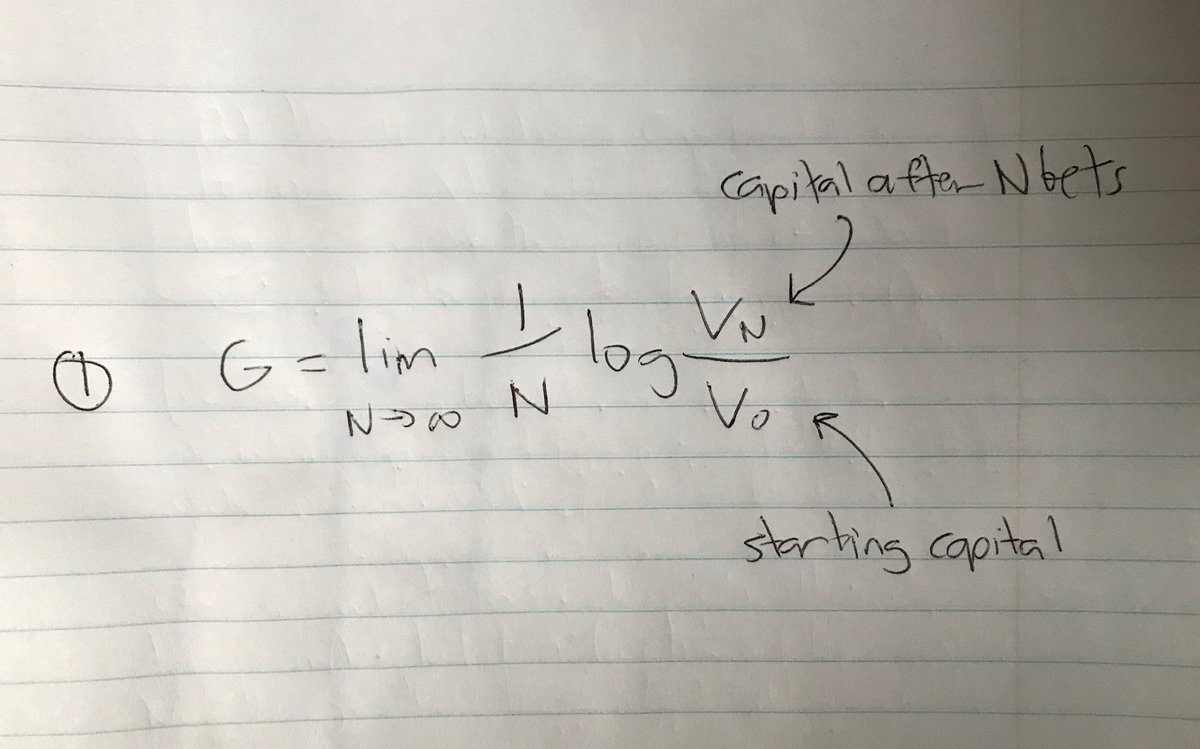 capital after N bets
① G = lim N→∞ 1/N log V_N/V_0
starting capital